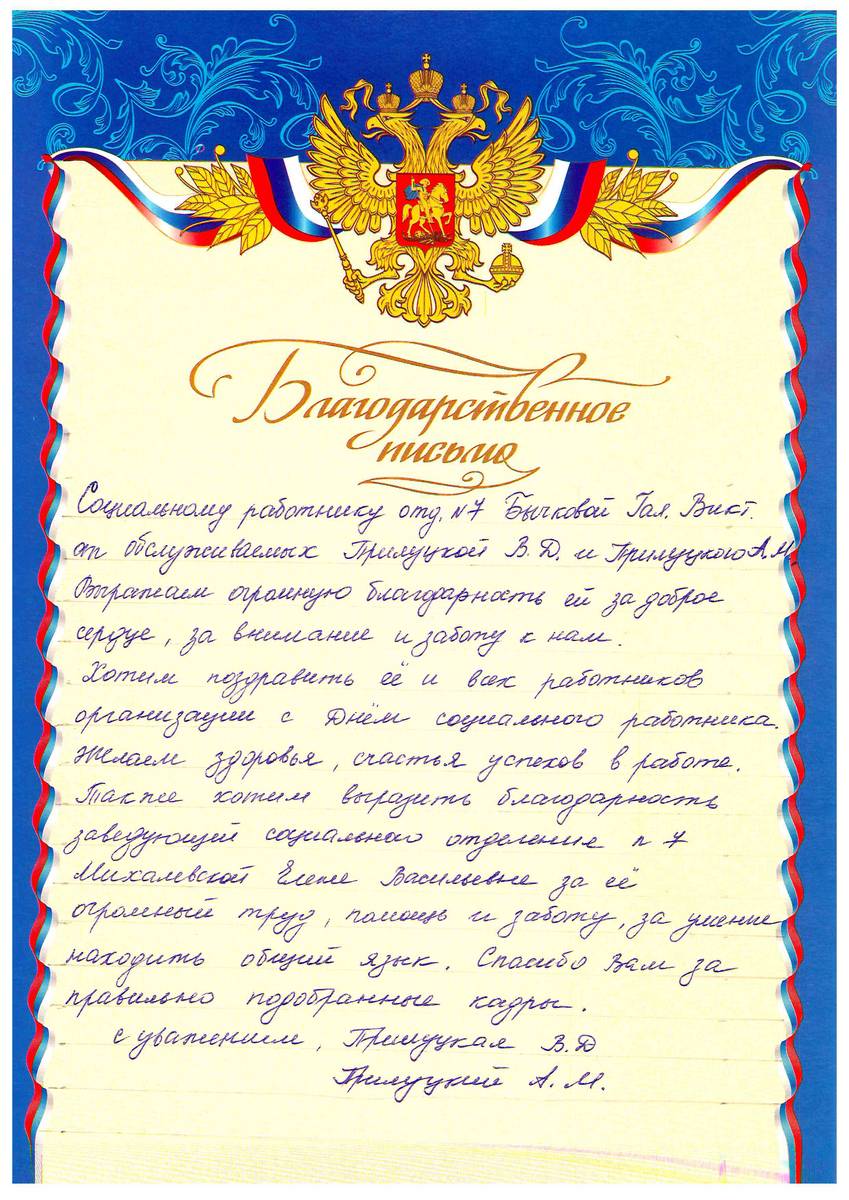 Благодарственное
письмо
Социальному работнику отд. №7 Бычковой Гал. Викт.
от обслуживаемых Прилуцкой В. Д. и Прилуцкого А. М.
Выражаем огромную благодарность ей за доброе
сердце, за внимание и заботу к нам.
Хотим поздравить её и всех работников
организации с Днём социального работника.
Желаем здоровья, счастья успехов в работе.
Также хотим выразить благодарность
заведующей социального отделения n 7
Михалевской Елене Васильевне за её
огромный труд, помощь и заботу, за умение
находить общий язык. Спасибо Вам за
правильно подобранные кадры.
С уважением, Прилуцкая В. Д
Прилуцкий А. М.